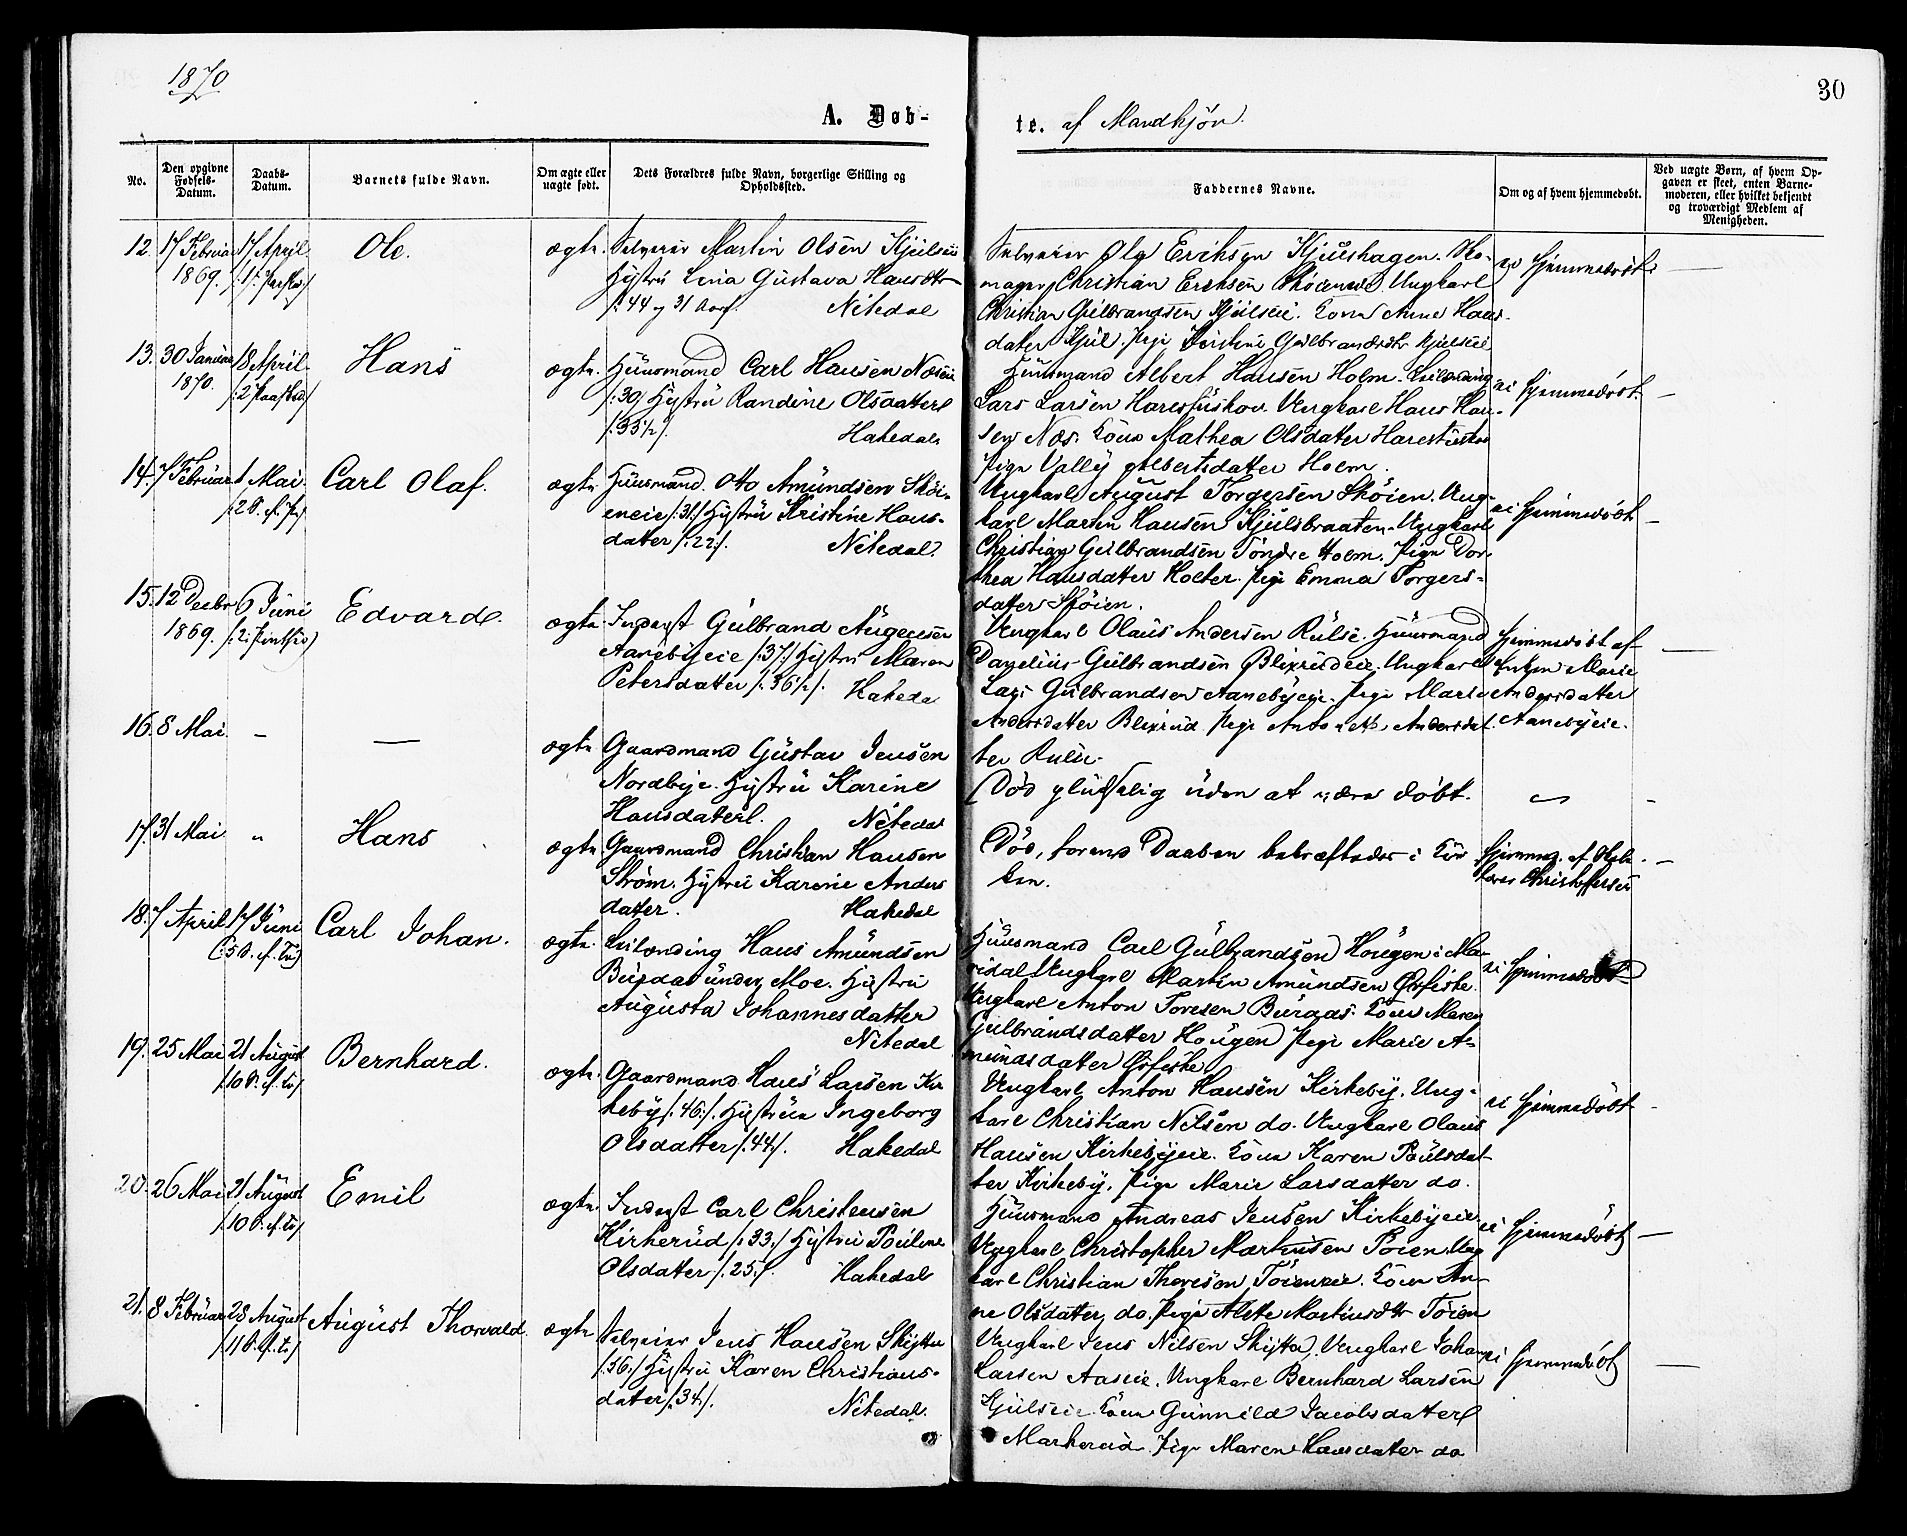 1870
30
A. Døb-
te. af Mandkjøn.
No.
Den opgivne Fødsels-Datum.
Daabs-Datum.
Barnets fulde Navn.
Om ægte eller uægte født.
Dets Forældres fulde Navn, borgerlige Stilling og Opholdssted.
Faddernes Navne.
Om og af hvem hjemmedøbt.
Ved uægte Børn, af hvem Op-
gaven er skeet, enten Barne-
moderen, eller hvilket bekjendt
og troværdigt Medlem af
Menigheden.
12. 17 Februar 17 April Ole. ægte. Selveier Martin Olsen Kjulseie
1869. Hustru Lina Gustava Hansdtr
/:44 og 31 Aar/. Nitedal
Selveier Ole Eriksen Kjulshagen. Sko-
mager Christian Eriksen Skøieneie. Ungkarl
Christian Gulbrandsen Kjulseie. Kone Anne Hans-
datter Kjul. Pige Kristine Gulbrandsdtr Kjulseie
ei hjemmedøbt
13. 30 Januar 18 April Hans ægte. Huusmand Carl Hansen Næseie
1870. /:39/ Hustru Randine Olsdatter
/:35½/. Hakedal
Huusmand Albert Hansen Holm. Leilending
Lars Larsen Harestuskov. Ungkarl Hans Han-
sen Næs. Kone Mathea Olsdatter Harestuskov
Pige Vally Albertsdatter Holm.
ei hjemmedøbt
14. 7 Februar 1 Mai Carl Olaf. ægte Huusmand Otto Amundsen Skøi-
eneie /:31:/ Hustru Kristine Hans-
datter /:22:/. Nitedal.
Ungkarl August Torgersen Skøien. Ung-
karl Martin Hansen Kjulsbraaten. Ungkarl
Christian Gulbrandsen Søndre Holm. Pige Dor-
thea Hansdatter Holter. Pige Emma Torgers-
datter Skøien.
ei hjemmedøbt
15. 12 Decbr 6 Juni Edvard. ægte. Inderst Gulbrand Augensen
1869. Aanebyeie /:37:/ Hustru Maren
Petersdatter /:36½/. Hakedal
Ungkarl Olaus Andersen Rulse. Huusmand
Danelius Gulbrandsen Blixrudeie. Ungkarl
Lars Gulbrandsen Aanebyeie. Pige Marie
Andersdatter Blixrud. Pige Antonette Andersdat-
ter Rulse.
hjemmedøbt af
Enken Marie
Andersdatter
Aanebyeie.
16. 8 Mai. - — ægte Gaardmand Gustav Jensen
Nordbye. Hustru Karine
Hansdatter. Nitedal
Død pludselig uden at være døbt.
17. 31 Mai " Hans ægte. Gaardmand Christian Hansen
Strøm. Hustru Karine Anders
datter. Hakedal
Død, forend Daaben bekræftedes i Kir
ken.
hjemmed. af Skole-
lærer Christoffersen
18. 7 April 17 Juni Carl Johan. ægte. Leilending Hans Amundsen
Burdal under Moe. Hustru
Augusta Johannesdatter
Nitedal
Huusmand Carl Gulbrandsen Hougen i Ma-
ridal. Ungkarl Martin Amundsen Ørfiske.
Ungkarl Anton Toresen Buraas. Kone Maren
Gulbrandsdatter Hougen. Pige Marie A-
mundsdatter Ørfiske
ei hjemmedøbt
19. 25 Mai 21 August Bernhard. ægte. Gaardmand Hans Larsen Kir
keby /:46:/. Hustrue Ingeborg
Olsdatter /:44/. Hakedal
Ungkarl Anton Hansen Kirkeby. Ung-
karl Christian Nilsen do. Ungkarl Olaus
Hansen Kirkebyeie. Kone Karen Poulsdat-
ter Kirkeby. Pige Marie Larsdatter do.
ei hjemmedøbt
20. 26 Mai 21 August Emil ægte. Inderst Carl Christensen
Kirkerud /:33:/ Hustru Pouline
Olsdatter /:25:/. Hakedal
Huusmand Andreas Jensen Kirkebyeie.
Ungkarl Christopher Martinsen Tøien. Ung
karl Christian Thoresen Tøieneie. Kone An-
ne Olsdatter do. Pige Alette Martinsdtr Tøien
ei hjemmedøbt
21. 8 Februar 28 August August Thorvald. ægte Selveier Jens Hansen Skytta
/:36:/ Hustru Karen Christians-
datter /:34/. Nitedal.
Ungkarl Jens Nilsen Skytta, Ungkarl Johan
Larsen Aaseie. Ungkarl Bernhard Larsen
Kjulseie. Kone Gunnild Jacobsdatter
Markerud. Pige Maren Hansdatter do
ei hjemmedøbt